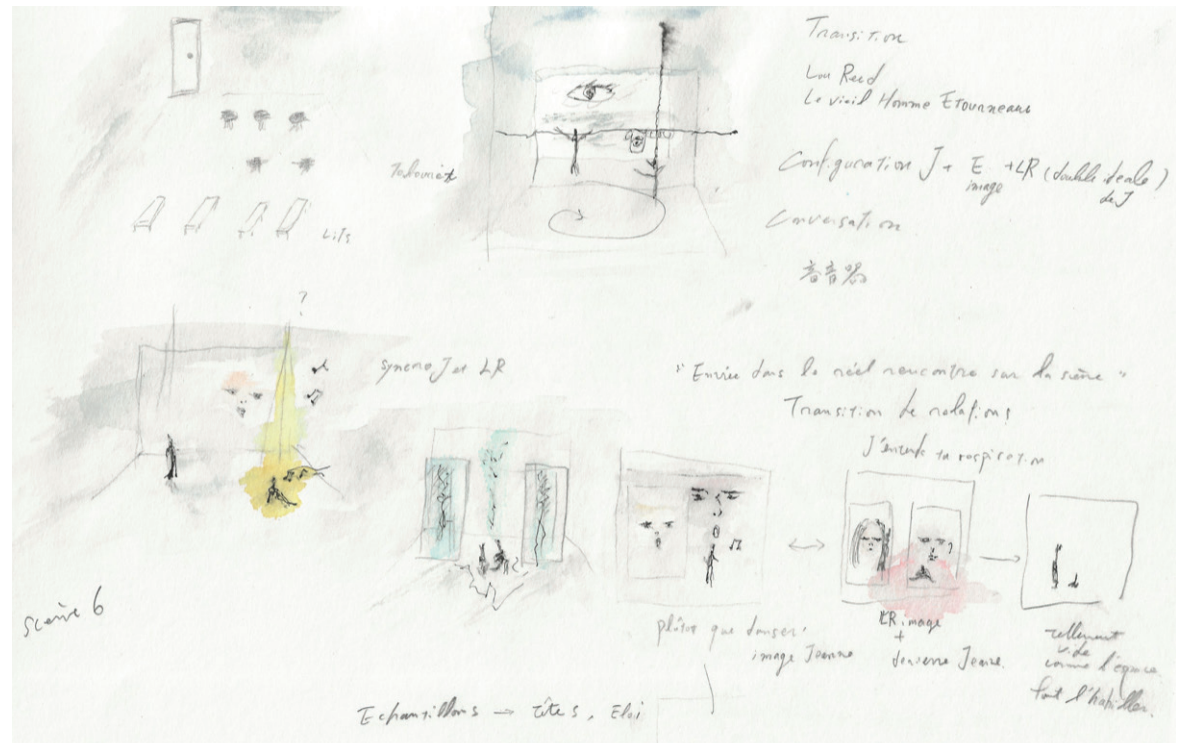 Transition
Lou Reed
Le vieil Homme Etourneaus
Configuration J + E + LR (double
image
de J
Conversation
Lits
?
synchro J et LR
" Entrée dans le réel rencontre sur la scène "
Transition de relations
J'entends ta respiration
Scène 6
plutôt que danser,
image Jeanne
LR image
+
danseuse Jeanne
tellement
vide
comme l'espace
faut l'habiller.
Echantillons → têtes, Eloi